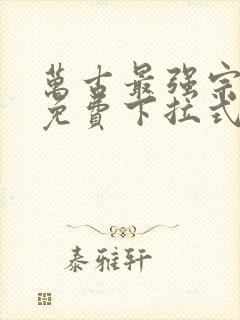 萬古最强宗
免費下拉式
泰雅轩